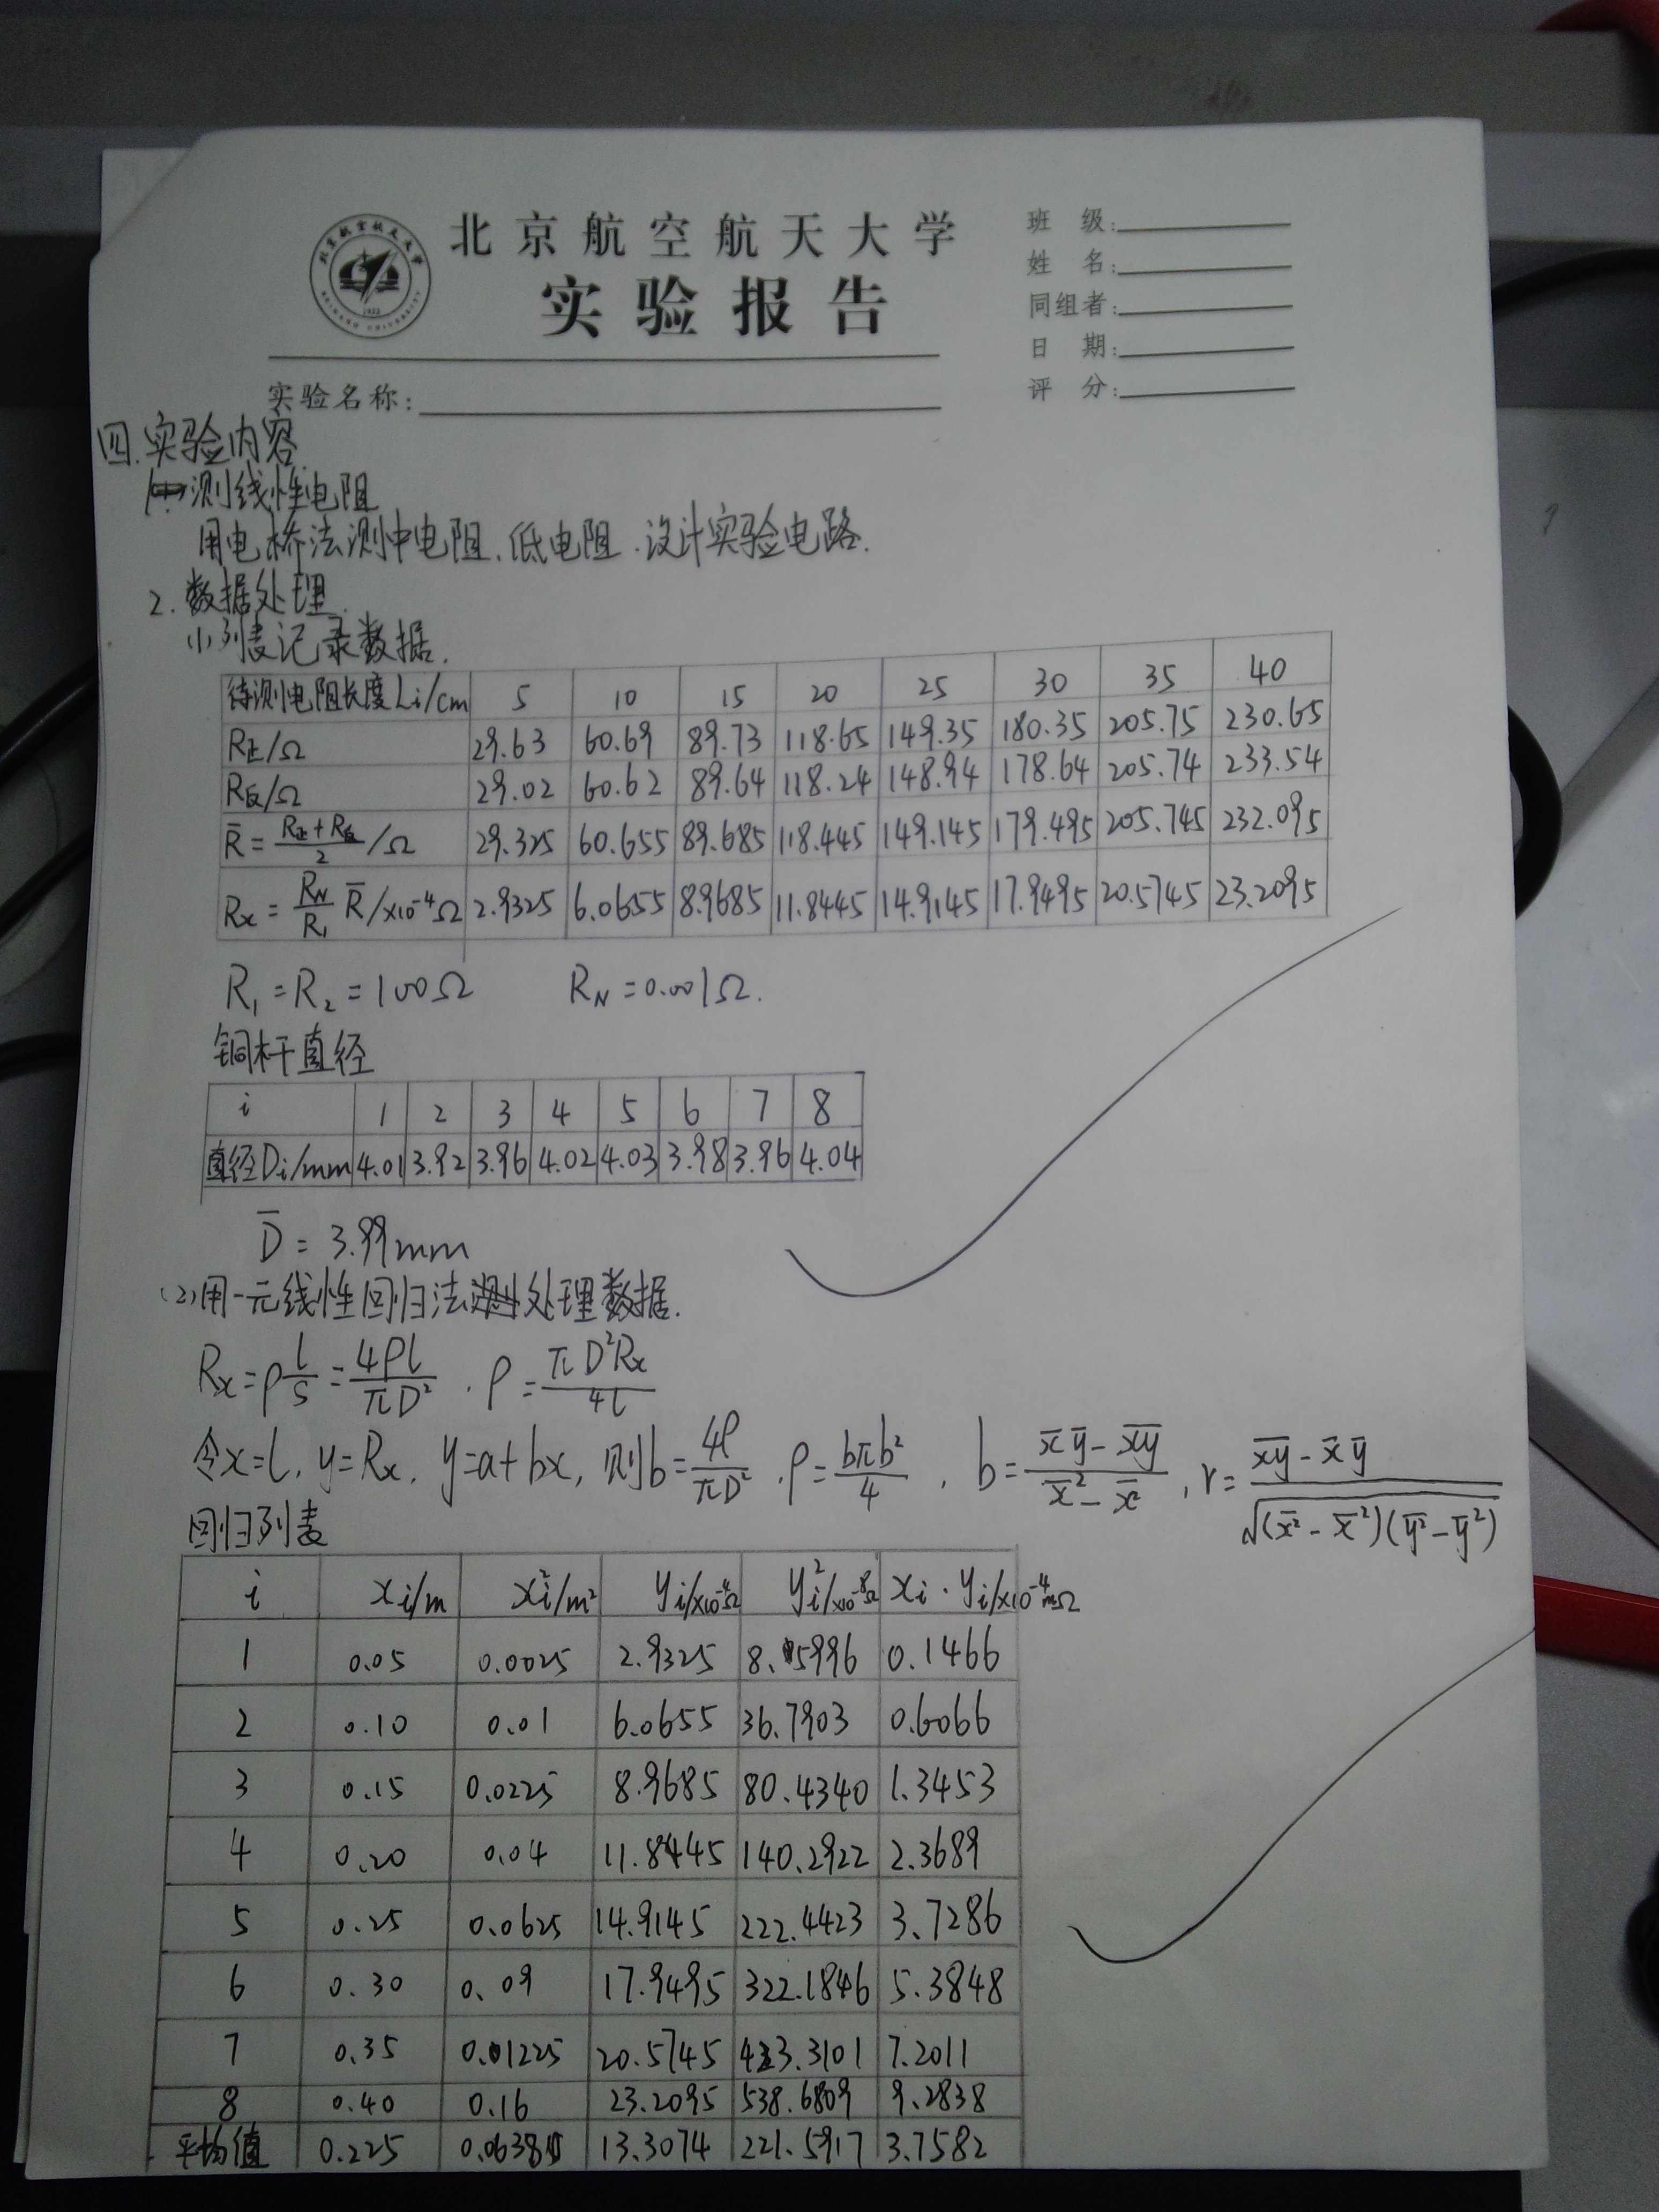 北京航空航天大学
实验报告
班 级:
姓 名:
同组者:
日 期:
评 分:
实验名称:
四.实验内容
测线性电阻
用电桥法测中电阻、低电阻.设计实验电路.
2.数据处理.
(1)列表记录数据.
待测电阻长度Li/cm 5 10 15 20 25 30 35 40
R正/Ω 29.63 60.69 89.73 118.65 149.35 180.35 205.75 230.65
R反/Ω 29.02 60.62 89.64 118.24 148.94 178.64 205.74 233.54
R̄=(R正+R反)/2 /Ω 29.325 60.655 89.685 118.445 149.145 179.495 205.745 232.095
Rx=(RN/R1)R̄/×10⁻⁴Ω 2.9325 6.0655 8.9685 11.8445 14.9145 17.9495 20.5745 23.2095
R₁=R₂=100Ω RN=0.001Ω.
铜杆直径
i 1 2 3 4 5 6 7 8
直径Di/mm 4.01 3.92 3.96 4.02 4.03 3.98 3.96 4.04
D̄=3.99mm
(2)用一元线性回归法处理数据.
Rx=ρ l/S=4ρl/πD² . ρ=πD²Rx/4l
令x=l, y=Rx, y=a+bx, 则b=4ρ/πD² , ρ=bπb²/4 , b=(x̄ ȳ-x̄ȳ)/(x̄²-x̄²) , r=(x̄ȳ-x̄ ȳ)/√((x̄²-x̄²)(ȳ²-ȳ²))
回归列表
i xi/m xi²/m² yi/×10⁻⁴Ω yi²/×10⁻⁸Ω² xi·yi/×10⁻⁴mΩ
1 0.05 0.0025 2.9325 8.5996 0.1466
2 0.10 0.01 6.0655 36.7903 0.6066
3 0.15 0.0225 8.9685 80.4340 1.3453
4 0.20 0.04 11.8445 140.2922 2.3689
5 0.25 0.0625 14.9145 222.4423 3.7286
6 0.30 0.09 17.9495 322.1846 5.3848
7 0.35 0.01225 20.5745 423.3101 7.2011
8 0.40 0.16 23.2095 538.6809 9.2838
平均值 0.225 0.0638 13.3074 221.5917 3.7582